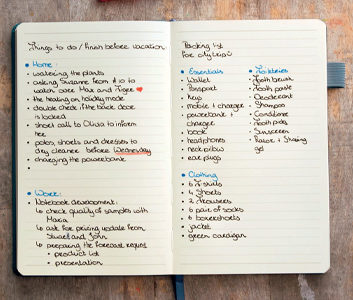 Things to do / finish before vacation
Home:
watering the plants
asking Suzanne from # 10 to
watch over Max and Tiger
the heating on holiday mode
double check if the back door
is locked
short call to Olivia to inform
her
polos, shorts and dresses to
dry cleaner before Wednesday
charging the powerbank
Work:
Notebook development:
check quality of samples with
Maria
ask for pricing update from
Stuart and John
preparing the forecast report
product list
presentation
Packing list
for city trip
Essentials
Wallet
Passport
Keys
mobile + charger
powerbank +
charger
book
headphones
neck pillow
ear plugs
Clothing
6 T-shirts
4 Shorts
2 trousers
6 pair of socks
6 boxershorts
jacket
green cardigan
Toiletries
Tooth brush
Tooth paste
Deodorant
Shampoo
Conditioner
Tooth picks
Sunscreen
Razor + Shaving
gel